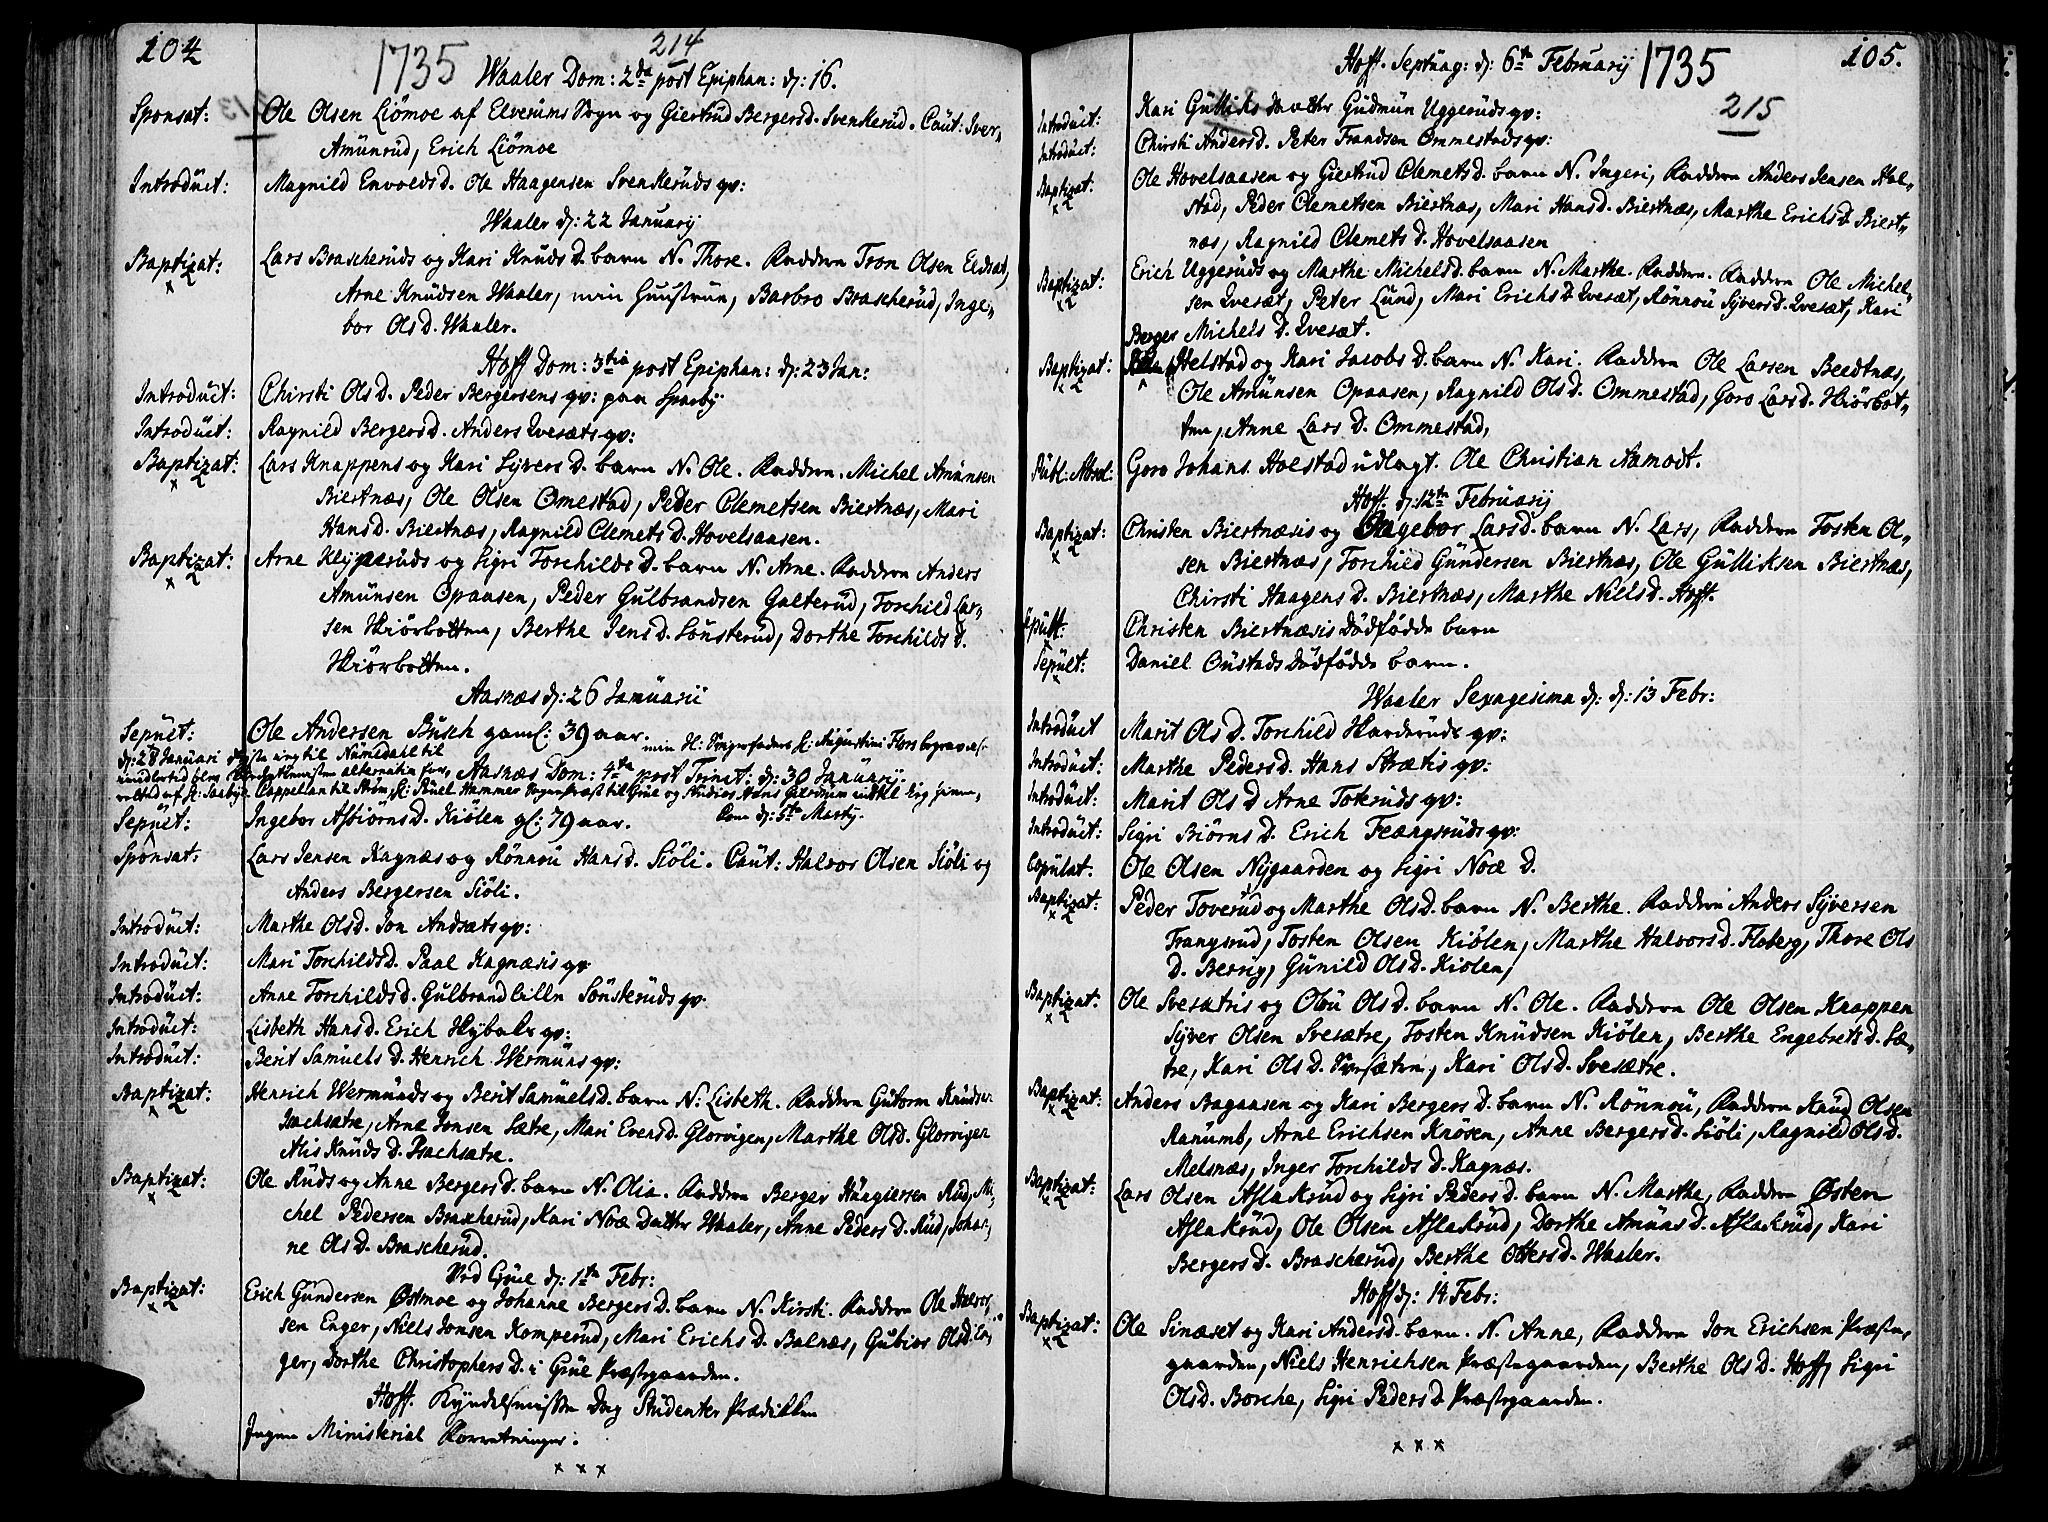 104
1735
214
Waaler Dom: 2da post Epiphan: d: 16.
Sponsat: Ole Olsen Liömoe af Elverums Sogn og Giertrud Bergersd. Svenkerud. Caut: Iver
Amunrud, Erich Liömoe
Introduct: Magnild Envoldsd. Ole Haagensen Svenkeruds qv:
Waaler d: 22 Januarij
Baptizat: Lars Brascheruds og Kari Knuds D. barn N. Thore. Faddere Tron Olsen Eldsæt,
Arne Knudsen Waaler, min Huustrue, Barbro Brascherud, Inge„
bor Ols D. Waaler.
Hoff Dom: 3tia post Epiphan: d: 23 Jan:
Introduct: Chirsti Ols D. Peder Bergersens qv: paa Sparby
Introduct: Ragnild Bergersd. Anders Qvesæts qv:
Baptizat: Lars Knappens og Kari Syvers D. barn N. Ole. Faddere. Michel Amunsen
Biertnæs, Ole Olsen Omestad, Peder Clemetsen Biertnæs, Mari
Hansd. Biertnæs, Ragnild Clemets D. Hovelsaasen.
Baptizat: Arne Klypperuds og Sigri Torchilds D. barn N. Arne. Faddere Anders
Amunsen Opaasen, Peder Gulbrandsen Galterud, Torchild Lar„
sen Kiörbotten, Berthe Jens D. Sönsterud, Dorthe Torchilds D.
Kiörbotten.
Aasnæs d: 26 Januarii
Sepult: Ole Andersen Busch gaml: 39 aar.
d: 28 Januari reyste ieg til Numedahl til min Sl: Svigerfaders Hr: Augustini Flors begravelse
Aasnæs Dom: 4ta post Trinit: d: 30 Januarij.
Dom d: 5te Martij.
Sepult: Ingebor Asbiörns D. Kiölen gl: 79 aar.
Sponsat: Lars Jensen Kagnæs og Rönnou Hansd. Siöli. Caut: Halvor Olsen Siöli og
Anders Bergersen Siöli.
Introduct: Marthe Olsd. Jon Andsæts qv:
Introduct: Mari Torchildsd. Paal Kagnæsis qv
Introduct: Anne Torchildsd. Gulbrand lille Sönsteruds qv.
Introduct: Lisbeth Hansd. Erich Kybaks qv:
Introduct: Berit Samuels D. Henrich Wermuns qv:
Baptizat: Henrich Wermunds og Berit Samuelsd. barn N: Lisbeth. Faddere Gutorm Knudsen
Isachsætre, Arne Jonsen Sætre, Mari Evensd. Glorvigen, Marthe Olsd. Glorvigen
Alis Knuds D. Isachsætre.
Baptizat: Ole Ruds og Anne Bergers D. barn N. Olia. Faddere Berger Haagiersen Rud, Mi„
chel Pedersen Brascherud, Kari Noæ Datter Waaler, Anne Peders D. Rud, Johan„
ne Ols D. Brascherud.
Ved Grue d: 1te Febr:
Baptizat: Erich Gundersen Østmoe og Johanne Bergers D. barn N. Kirsti. Faddere Ole Halvor„
sen Enger, Niels Jonsen Komperud, Mari Erichs D. Balnæs, Gubior Olsd. En„
ger, Dorthe Christophers D. i Grue Præstgaarden.
Hoff. Kyndelsmisse Dag Studenter Prædikken
Ingen Ministerial Forretninger.
x x x
105.
1735
215
Hoff. Septuag: d: 6te Februarij
Introduct: Kari Gulliks Datter Gudmun Uggeruds qv:
Introduct: Chirsti Andersd. Peter Frandsen Ommestads qv:
Baptizat: Ole Hovelsaasen og Giertrud Clemets D. barn N. Ingeri, Faddere Anders Jensen Hol„
stad, Peder Clemetsen Biertnæs, Mari Hansd. Biertnæs, Marthe Erichs D. Biert„
næs, Ragnild Clemets D. Hovelsaasen
Baptizat: Erich Uggeruds og Marthe Michelsd. barn N. Marthe. Faddere. Faddere Ole Michel„
sen Qvesæt, Peter Lund, Mari Erichs D. Qvesæt, Rönnou Syversd. Qvesæt, Kari
Michels D. Qvesæt.
Baptizat: Berger Helstad og Kari Jacobs D. barn N. Kari. Faddere Ole Larsen Beedtnæs,
Ole Amunsen Opaasen, Ragnild Ols D. Ommestad, Goro Larsd. Kiörbot„
ten, Anne Lars D. Ommestad,
Publ: Absol: Goro Johans Holstad udlagt. Ole Christian Aamodt.
Hoff. d: 12te Februarij
Baptizat: Christen Biertnæsis og Ingebor Larsd. barn N. Lars, Faddere Tosten Ol„
sen Biertnæs, Torchild Gundersen Biertnæs, Ole Gulliksen Biertnæs,
Chirsti Haagens D. Biertnæs, Marthe Nielsd. Hoff.
Sepult: Christen Biertnæsis Dödfödde barn
Sepult: Daniel Oustads Dödfödde barn.
Waaler Sexagesima d: d: 13 Febr:
Introduct Marit Ols D. Torchild Harderuds qv:
Introduct: Marthe Pedersd. Hans Strætis qv:
Introduct: Marit Ols D Arne Tokruds qv:
Introduct: Sigri Biörns D. Erich Frangsruds qv:
Copulat: Ole Olsen Nygaarden og Sigri Noæ D.
Baptizat: Peder Toverud og Marthe Olsd. barn N. Berthe. Faddere Anders Syversen
Frangsrud, Tosten Olsen Kiölen, Marthe Halvorsd. Floberg, Thore Ols
D. Berrig, Gunild Olsd. Kiölen,
Baptizat: Ole Svesætris og Olou Olsd. barn N. Ole. Faddere Ole Olsen Knappen
Syver Olsen Svesætre, Tosten Knudsen Kiölen, Berthe Engebrets D. Sæ„
tre, Kari Ols D. Svesætre, Kari Olsd. Svesætre.
Baptizat: Anders Bagaasen og Kari Bergers D. barn N. Rönnou, Faddere Knud Olsen
Ranumb, Arne Erichsen Knösen, Anne Bergersd. Siöli, Ragnild Olsd.
Melsnæs, Inger Torchilds D. Kagnæs.
Baptizat: Lars Olsen Aslakrud og Sigri Peders D. barn N. Marthe, Faddere Østen
Aslakrud, Ole Olsen Aslakrud, Dorthe Amuns D. Aslakrud, Kari
Bergers D. Brascherud, Berthe Ottersd. Waaler.
Hoff d: 14 Febr:
Baptizat: Ole Sinæset og Kari Andersd. barn. N. Anne, Faddere Jon Erichsen Præste„
gaarden, Niels Henrichsen Præstegaarden, Berthe Ols D. Hoff, Sigri
Olsd. Borche, Sigri Peders D Præstegaarden.
x x x